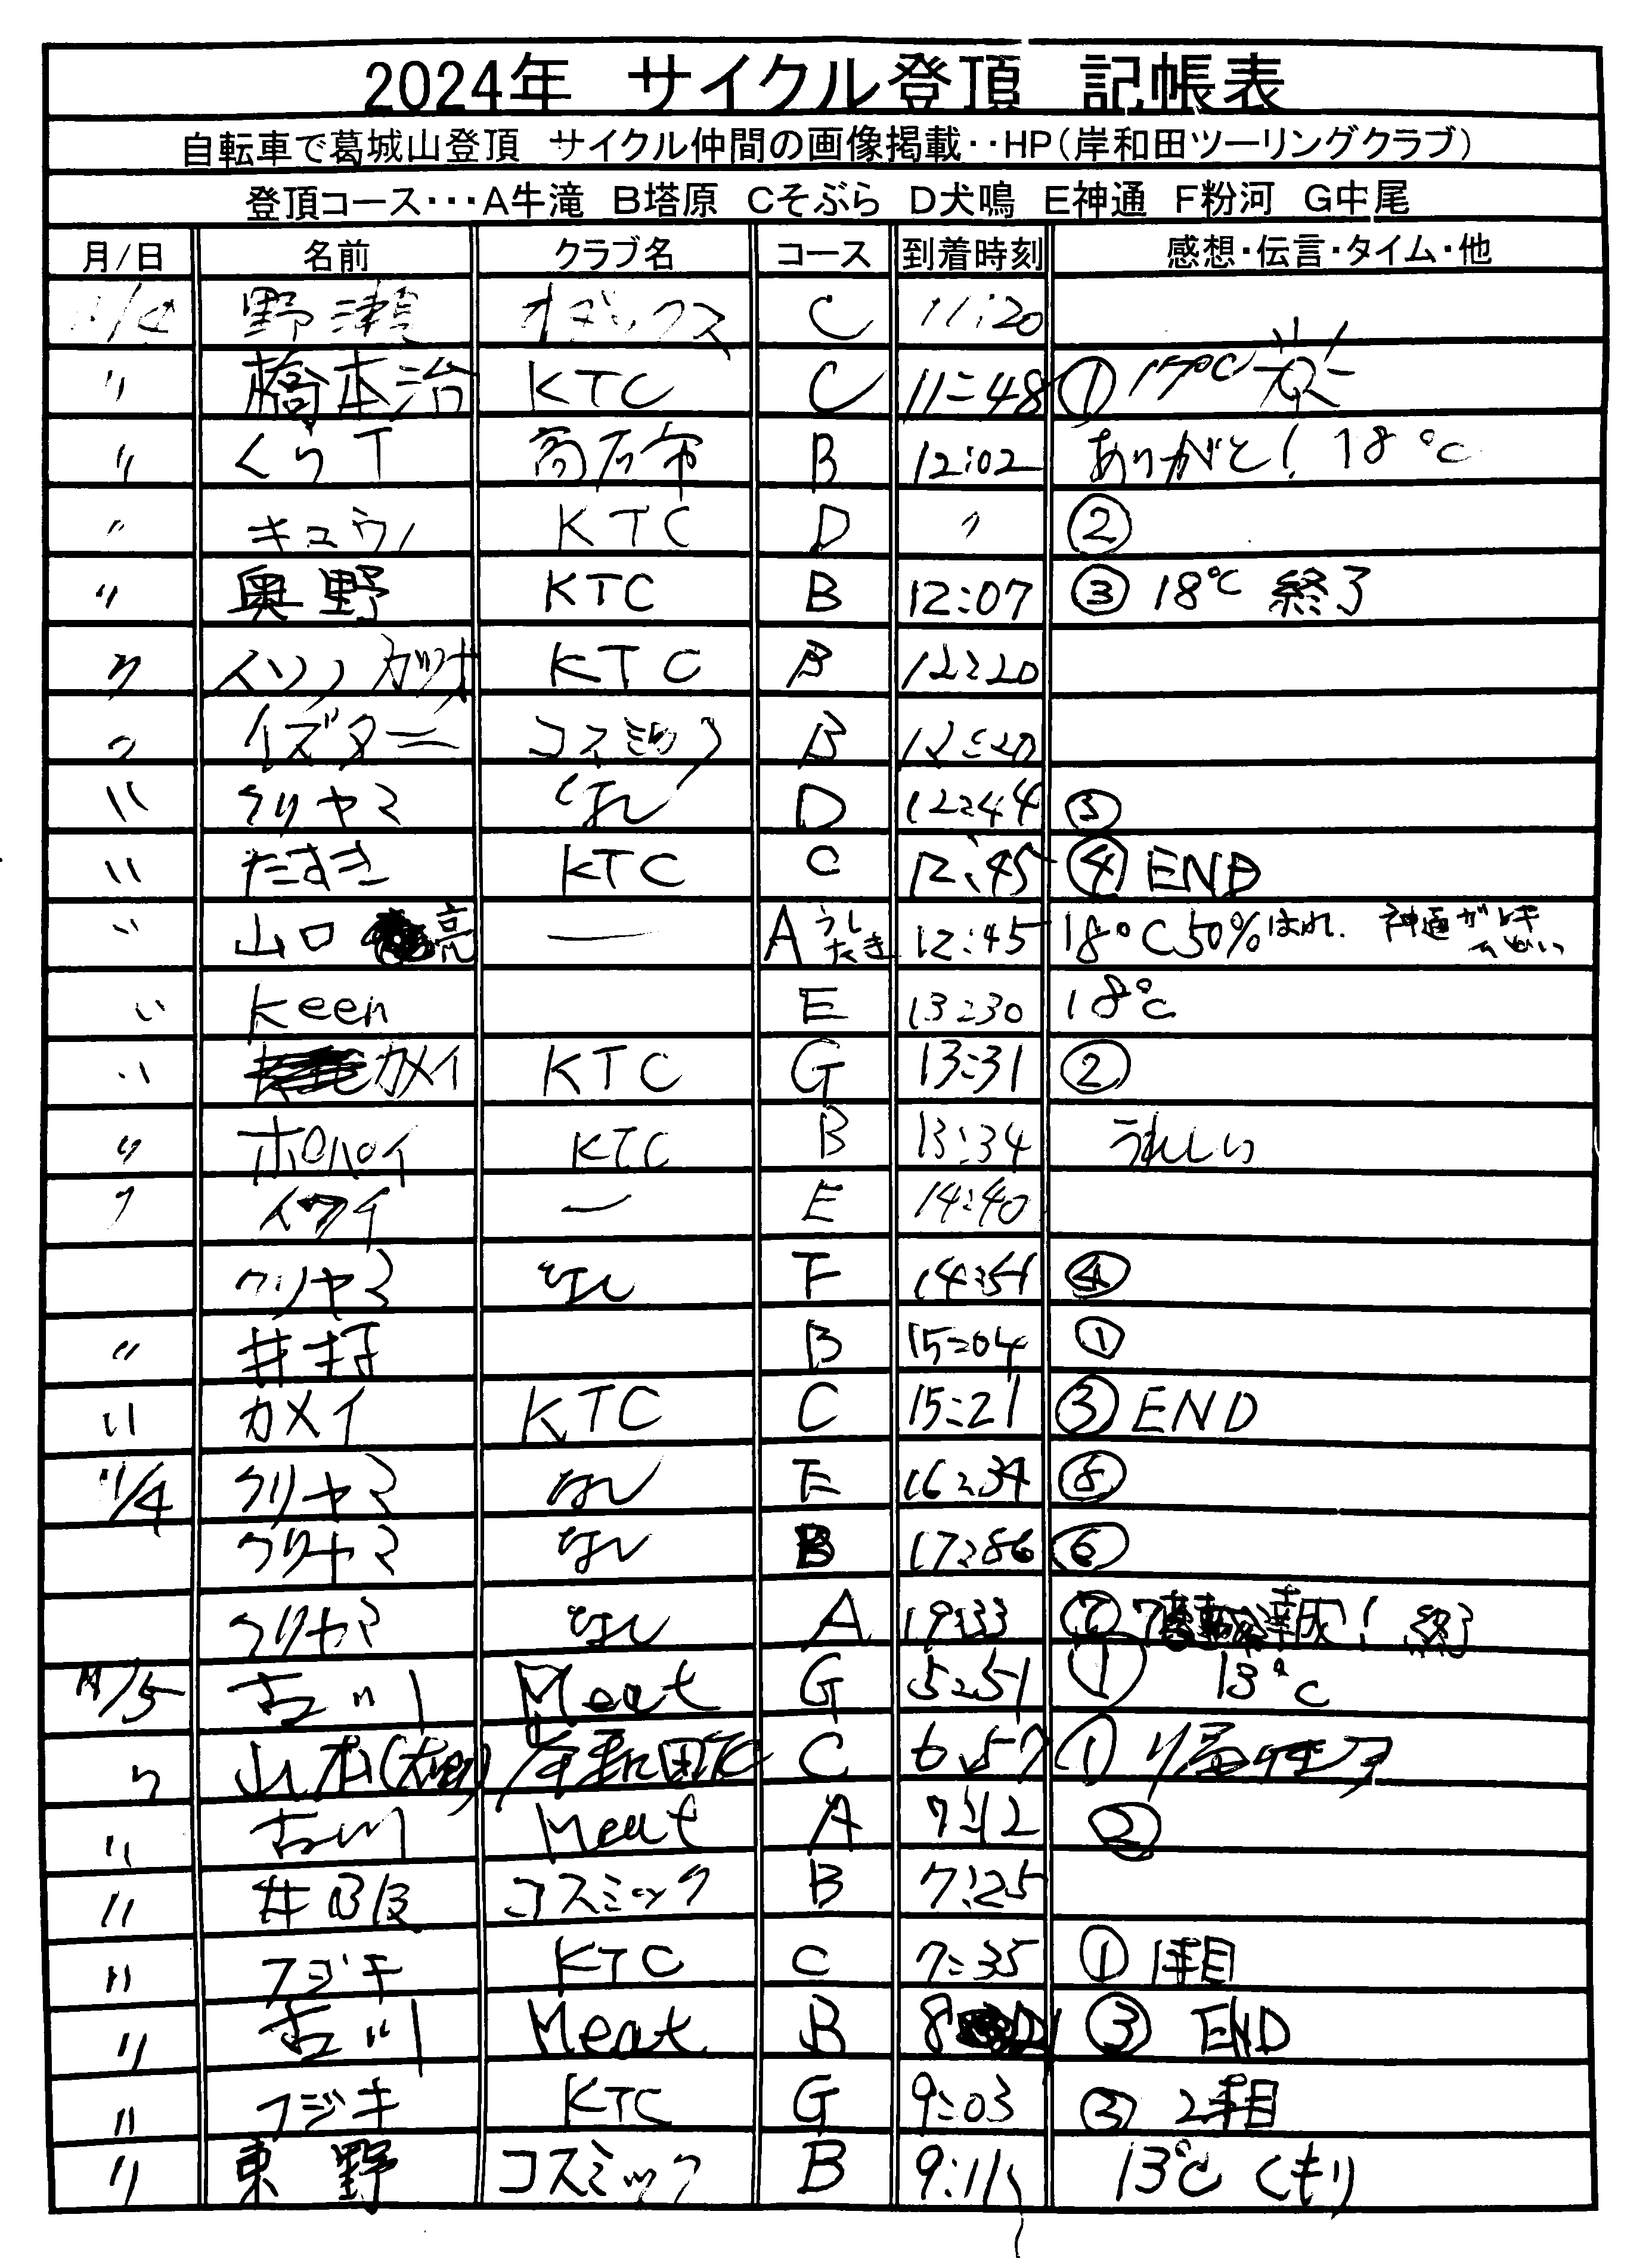 2024年 サイクル登頂 記帳表
自転車で葛城山登頂 サイクル仲間の画像掲載‥HP(岸和田ツーリングクラブ)
登頂コース･･･A牛滝 B塔原 Cそぶら D犬鳴 E神通 F粉河 G中尾
月/日 名前 クラブ名 コース 到着時刻 感想・伝言・タイム・他
11/4 野瀬 オダックス C 11:20
〃 橋本治 KTC C 11:48 ① 17℃
〃 くりT 高石市 B 12:02 ありがと! 18℃
〃 キュウ KTC D 〃 ②
〃 奥野 KTC B 12:07 ③ 18℃ 終了
〃 イソノカツオ KTC B 12:20
〃 イズター コスミック B 12:20
〃 クリヤマ なし D 12:44 ③
〃 たすき KTC C 12:45 ④ END
〃 山口 亮 — A うしたき 12:45 18℃ 50% はれ. 神通ガレキ
〃 Keen E 13:30 18℃
〃 カメイ KTC G 13:31 ②
〃 ポパイ KTC B 13:34 うれしい
〃 イワイ — E 14:40
クリヤマ なし F 14:51 ④
〃 井 B 15:04 ①
〃 カメイ KTC C 15:21 ③ END
11/4 クリヤマ なし E 16:34 ⑤
クリヤマ なし B ⑥
クリヤマ なし A 19:33 ⑦ 達成! 終了
11/5 古川 Meat G 5:51 ① 13℃
〃 山本 岸和田 C 6:57 ①
〃 古川 Meat A 7:12 ②
〃 井 コスミック B 7:25
〃 フジキ KTC C 7:35 ① 1本目
〃 古川 Meat B 8 ③ END
〃 フジキ KTC G 9:03 ② 2本目
〃 東野 コスミック B 9:11 13℃ くもり